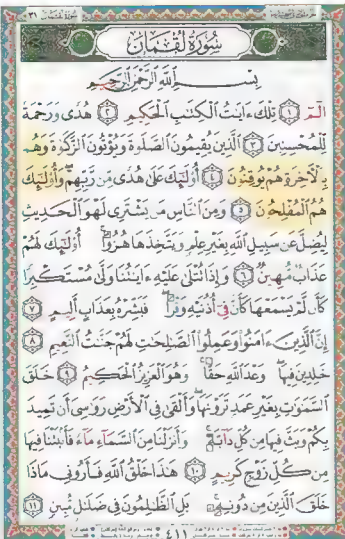 سُورَةُ لُقْمَان
بِسْمِ ٱللَّهِ ٱلرَّحْمَٰنِ ٱلرَّحِيمِ
الٓمٓ ١ تِلْكَ ءَايَٰتُ ٱلْكِتَٰبِ ٱلْحَكِيمِ ٢ هُدًى وَرَحْمَةً
لِّلْمُحْسِنِينَ ٣ ٱلَّذِينَ يُقِيمُونَ ٱلصَّلَوٰةَ وَيُؤْتُونَ ٱلزَّكَوٰةَ وَهُم
بِٱلْءَاخِرَةِ هُمْ يُوقِنُونَ ٤ أُو۟لَٰٓئِكَ عَلَىٰ هُدًى مِّن رَّبِّهِمْ وَأُو۟لَٰٓئِكَ
هُمُ ٱلْمُفْلِحُونَ ٥ وَمِنَ ٱلنَّاسِ مَن يَشْتَرِى لَهْوَ ٱلْحَدِيثِ
لِيُضِلَّ عَن سَبِيلِ ٱللَّهِ بِغَيْرِ عِلْمٍ وَيَتَّخِذَهَا هُزُوًا أُو۟لَٰٓئِكَ لَهُمْ
عَذَابٌ مُّهِينٌ ٦ وَإِذَا تُتْلَىٰ عَلَيْهِ ءَايَٰتُنَا وَلَّىٰ مُسْتَكْبِرًا
كَأَن لَّمْ يَسْمَعْهَا كَأَنَّ فِىٓ أُذُنَيْهِ وَقْرًا فَبَشِّرْهُ بِعَذَابٍ أَلِيمٍ ٧
إِنَّ ٱلَّذِينَ ءَامَنُوا۟ وَعَمِلُوا۟ ٱلصَّٰلِحَٰتِ لَهُمْ جَنَّٰتُ ٱلنَّعِيمِ ٨
خَٰلِدِينَ فِيهَا وَعْدَ ٱللَّهِ حَقًّا وَهُوَ ٱلْعَزِيزُ ٱلْحَكِيمُ ٩ خَلَقَ
ٱلسَّمَٰوَٰتِ بِغَيْرِ عَمَدٍ تَرَوْنَهَا وَأَلْقَىٰ فِى ٱلْأَرْضِ رَوَٰسِىَ أَن تَمِيدَ
بِكُمْ وَبَثَّ فِيهَا مِن كُلِّ دَآبَّةٍ وَأَنزَلْنَا مِنَ ٱلسَّمَآءِ مَآءً فَأَنۢبَتْنَا فِيهَا
مِن كُلِّ زَوْجٍ كَرِيمٍ ١٠ هَٰذَا خَلْقُ ٱللَّهِ فَأَرُونِى مَاذَا
خَلَقَ ٱلَّذِينَ مِن دُونِهِۦ بَلِ ٱلظَّٰلِمُونَ فِى ضَلَٰلٍ مُّبِينٍ ١١
٤١١